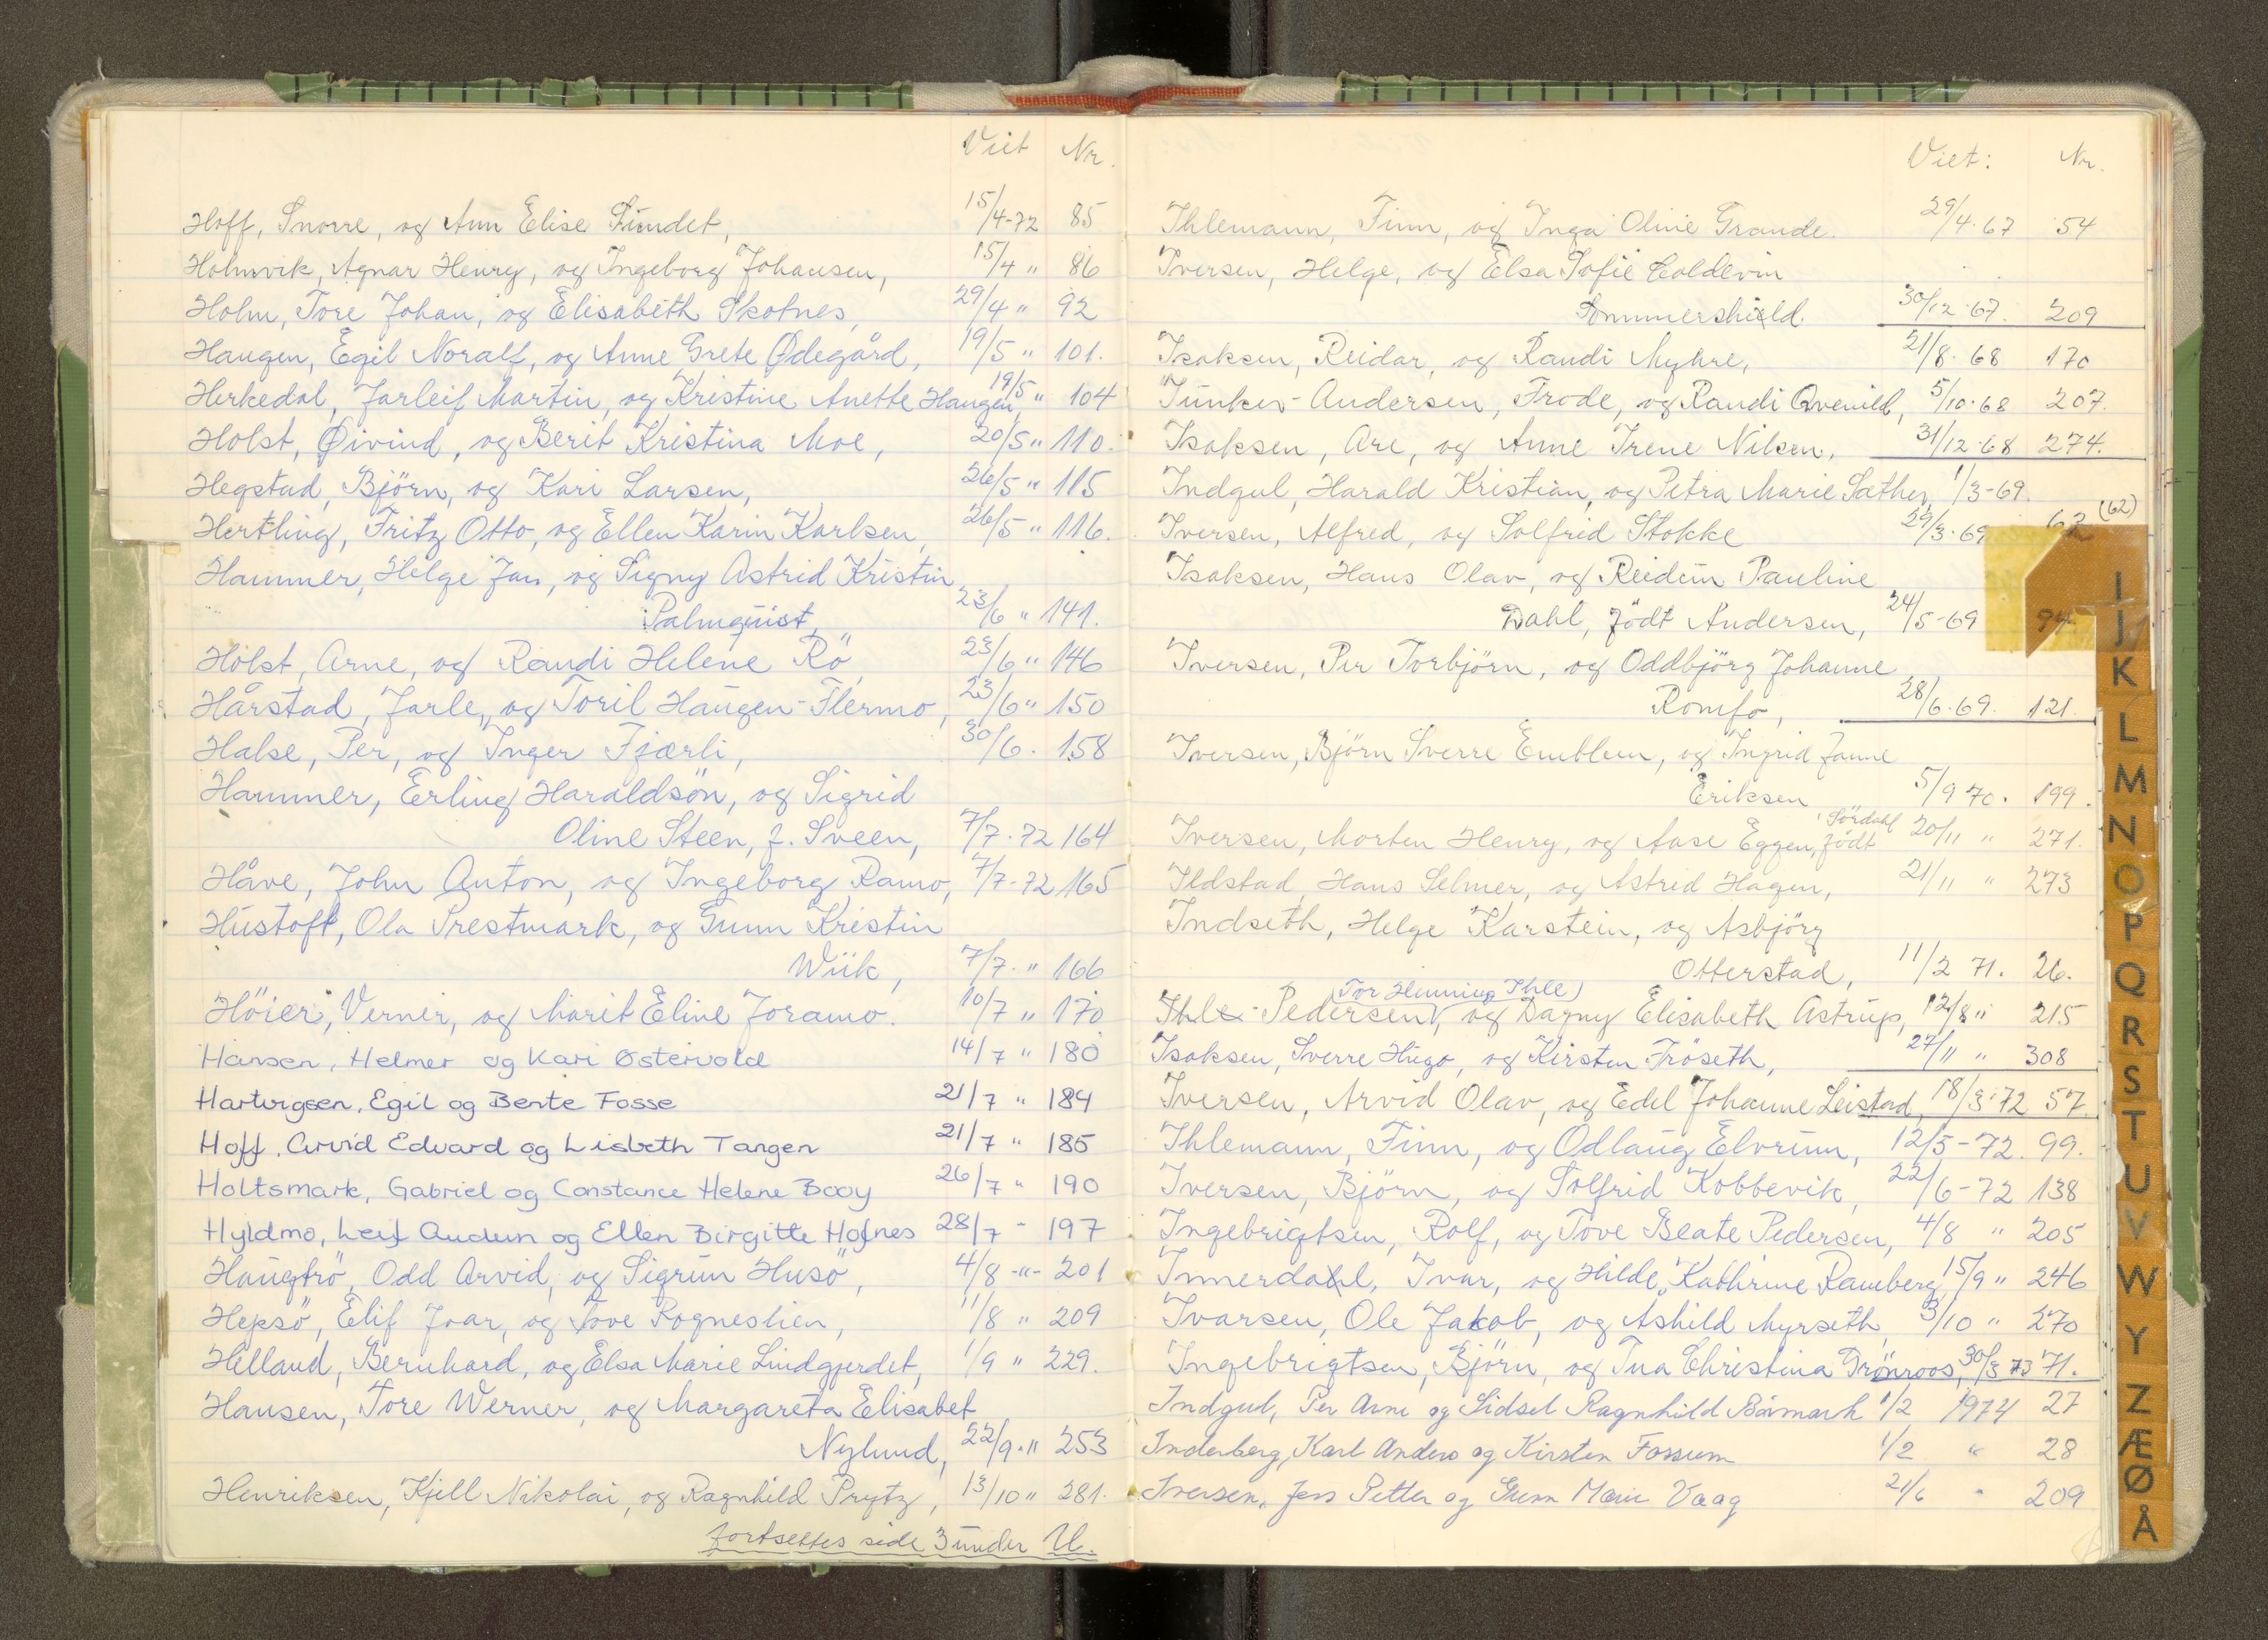 Viet Nr.
Hoff, Snorre, og Ann Elise Sundet, 15/4-72 85
Holmvik, Agnar Henry, og Ingeborg Johansen, 15/4 " 86
Holm, Tore Johan, og Elisabeth Skotnes, 29/4 " 92
Haugen, Egil Noralf, og Anne Grete Ødegård, 19/5 " 101.
Herkedal, Jarleif Martin, og Kristine Anette Haugen, 19/5 " 104
Holst, Øivind, og Berit Kristina Moe, 20/5 " 110.
Hegstad, Björn, og Kari Larsen, 26/5 " 115
Hertling, Fritz Otto, og Ellen Karin Karlsen, 26/5 " 116.
Hammer, Helge Jan, og Signy Astrid Kristin
Palmquist, 23/6 " 141.
Holst, Arne, og Randi Helene Rö, 23/6 " 146
Hårstad, Jarle, og Toril Haugen-Flermo, 23/6 " 150
Halse, Per, og Inger Fjærli, 30/6. 158
Hammer, Erling Haraldsön, og Sigrid
Oline Steen, f. Sveen, 7/7-72 164
Håve, John Anton, og Ingeborg Ramo, 7/7-72 165
Hustoft, Ola Prestmark, og Gunn Kristin
Wiik, 7/7. " 166
Höier, Verner, og Marit Eline Joramo. 10/7 " 170
Hansen, Helmer og Kari Østervold 14/7 " 180
Hartvigsen, Egil og Bente Fosse 21/7 " 184
Hoff, Arvid Edvard og Lisbeth Tangen 21/7 " 185
Holtsmark, Gabriel og Constance Helene Booy 26/7 " 190
Hyldmo, Leif Audun og Ellen Birgitte Hofnes 28/7 - 197
Haugtrö, Odd Arvid, og Sigrun Husö, 4/8 -"- 201
Hepsö, Elif Ivar, og Tove Rogneslien, 11/8 " 209
Helland, Bernhard, og Elsa Marie Lindgjerdet, 1/9 " 229.
Hansen, Tore Werner, og Margareta Elisabet
Nylund, 22/9. " 253
Henriksen, Kjell Nikolai, og Ragnhild Prytz, 13/10 " 281.
fortsettes side 3 under U.
Viet: Nr.
Ihlemann, Finn, og Inga Oline Grande. 29/4.67 54
Iversen, Helge, og Elsa Sofie Coldevin
Sommershield. 30/12.67. 209
Isaksen, Reidar, og Randi Myhre, 21/8.68 170
Junker-Andersen, Frode, og Randi Qvenild, 5/10.68 207.
Isaksen, Are, og Anne Irene Nilsen, 31/12.68 274.
Indgul, Harald Kristian, og Petra Marie Sæther, 1/3-69.
Iversen, Alfred, og Solfrid Stokke 29/3.69 62 (62)
Isaksen, Hans Olav, og Reidun Pauline
Dahl, födt Andersen, 24/5-69 94
Iversen, Per Torbjörn, og Oddbjörg Johanne
Romfo, 28/6.69. 121.
Iversen, Björn Sverre Emblem, og Ingrid Janne
Eriksen 5/9 70. 199.
Iversen, Morten Henry, og Aase Eggen, födt Sördahl 20/11 " 271.
Ildstad, Hans Selmer, og Astrid Hagen, 21/11 " 273
Indseth, Helge Karstein, og Asbjörg
Otterstad, 11/2 71. 26.
(Tor Henning Ihle)
Ihle-Pedersen, og Dagny Elisabeth Astrup, 12/8 " 215
Isaksen, Sverre Hugo, og Kirsten Fröseth, 27/11 " 308
Iversen, Arvid Olav, og Edel Johanne Leistad, 18/3-72 57.
Ihlemann, Finn, og Odlaug Elvrum, 12/5-72. 99.
Iversen, Björn, og Solfrid Kobbevik, 22/6-72 138
Ingebrigtsen, Rolf, og Tove Beate Pedersen, 4/8 " 205
Innerdahl, Ivar, og Hilde Kathrine Ramberg, 15/9 " 246
Ivarsen, Ole Jakob, og Åshild Myrseth, 3/10 " 270
Ingebrigtsen, Björn, og Tua Christina Grönroos, 30/3 73 71.
Indgul, Per Arne og Sidsel Ragnhild Bårmark 1/2 1974 27
Inderberg, Karl Anders og Kirsten Fossum 1/2 " 28
Iversen, Jens Petter og Gunn Marie Vaag 21/6 " 209
I
J
K
L
M
N
O
P
Q
R
S
T
U
V
W
Y
Z
Æ
Ø
Å